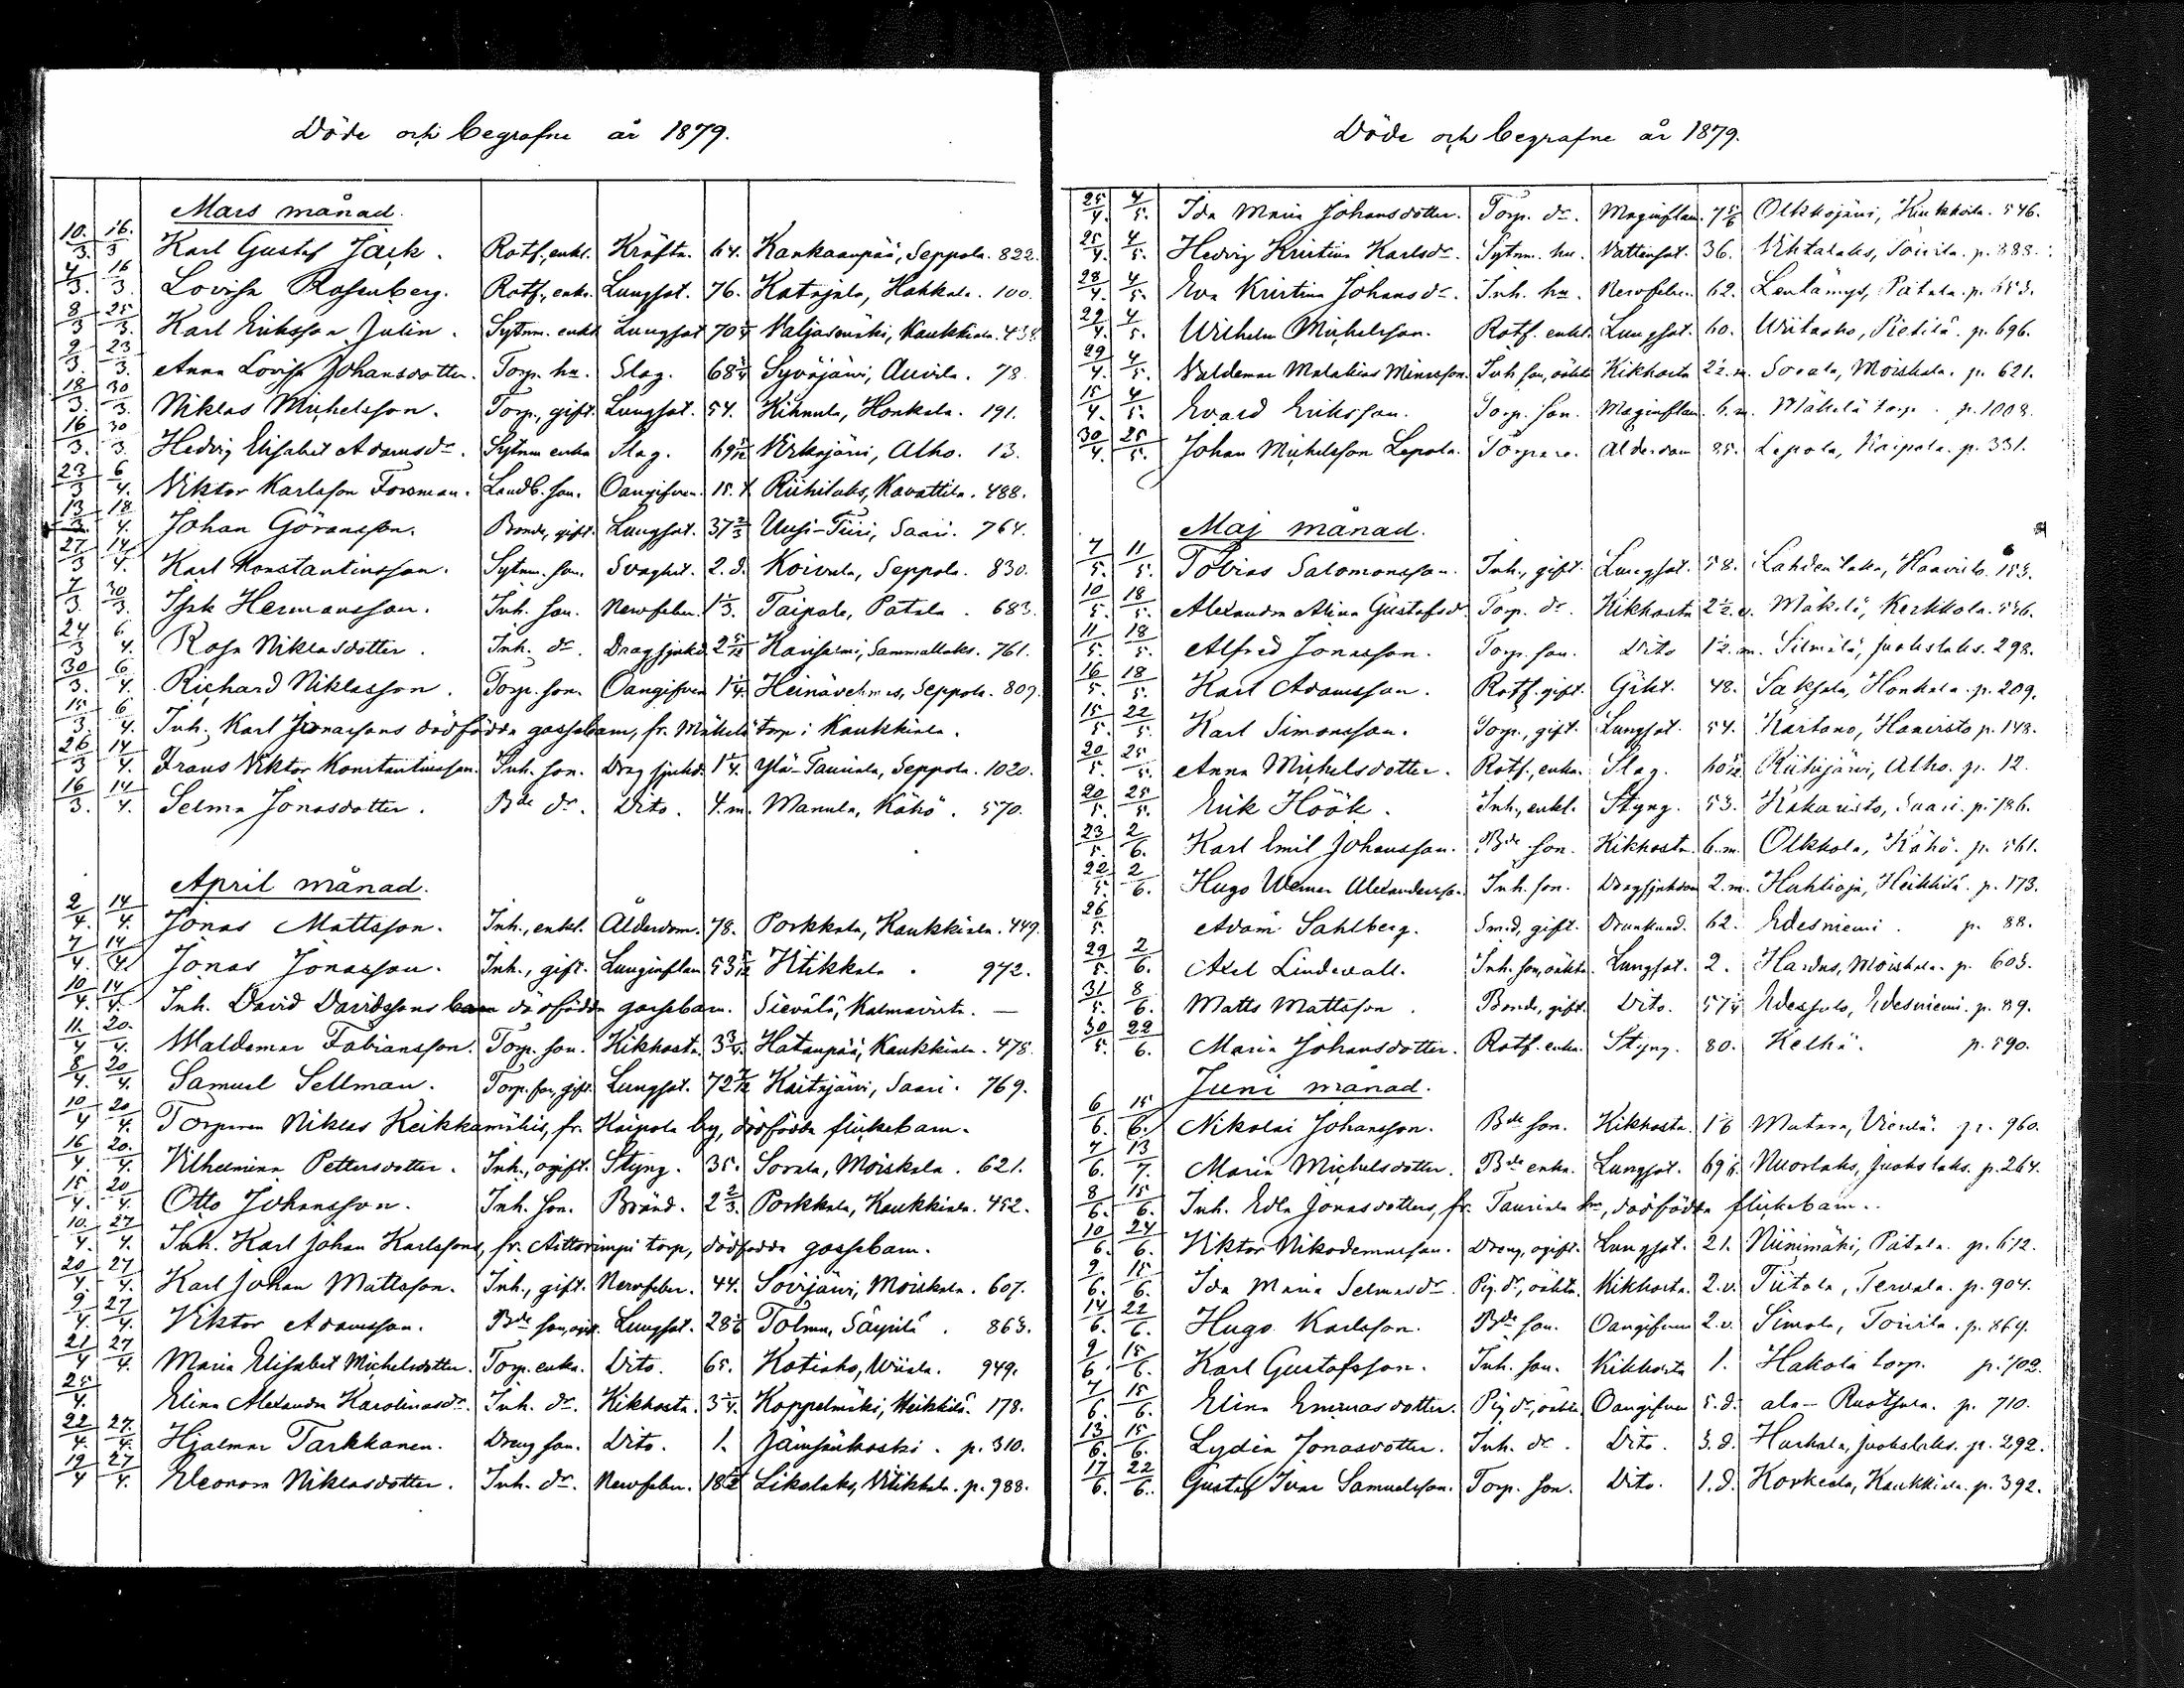 Döde och begrafne år 1879.
Mars månad.
10/3. 16./3 Karl Gustaf Jack. Rotf., enkl. Kräfta. 64. Kankaanpää, Seppola. 822.
4/3. 16/3. Lovisa Rosenberg. Rotf., enka. Lungsot. 76. Katajala, Hakkala. 100.
8/3 25/3. Karl Eriksson Julin. Sytnm. enkl. Lungsot 70 Valjasmäki, Kaukkiala.
9/3. 23/3. Anna Lovisa Johansdotter. Torp. hu. Slag. 68 3/4 Syväjärvi, Auvila. 78.
18/3. 30/3. Niklas Michelsson. Torp., gift. Lungsot. 54. Kihnula, Honkala. 191.
16/3. 30/3. Hedvig Elisabet Adamsdr. Sytnm enka Slag. 69 Virkajärvi, Alho. 13.
23/3 6/4. Viktor Karlsson Forsman. Landb. son. Oangifven. 15. Riihilaks, Kavattila. 488.
13/3. 18/4. Johan Göransson. Bonde, gift. Lungsot. 37 2/3 Uusi-Tiiri, Saari. 764.
27/3 14/4. Karl Konstantinsson. Sytnm. son. Svaghet. 2. d. Koivula, Seppola. 830.
7/3. 30/3. Isak Hermansson. Inh. son. Nervfeber. 1 1/3. Taipale, Patala. 683.
24/3 6/4. Rosa Niklasdotter. Inh. dr. Dragsjukd. 2 5/12 Kansalmi, Sammallaks. 761.
30/3. 6/4. Richard Niklasson. Torp. son. Oangifven 1 1/4. Heinävehmas, Seppola. 809.
15/3 6/4. Inh. Karl Jonassons dödfödda gossebarn, fr. Mäkelä torp i Kaukkiala.
26/3 14/4. Frans Viktor Konstantinsson. Inh. son. Dragsjukd. 1 1/4. Ylä-Tauriala, Seppola. 1020.
16/3. 14/4. Selma Jonasdotter. Bde dr. Dito. 4. m. Mannila, Kähö. 570.
April månad.
2/4. 14/4. Jonas Mattsson. Inh., enkl. Ålderdom. 78. Porkkala, Kaukkiala. 449.
7/4. 14/4. Jonas Jonasson. Inh., gift. Lunginflam 53 Vitikkala. 972.
10/4. 14/4. Inh. David Davidssons dödfödda gossebarn. Sievälä, Kalmavirta. —
11./4 20./4. Waldemar Fabiansson. Torp. son. Kikhosta. 3 3/4. Hatanpää, Kaukkiala. 478.
8/4. 20/4. Samuel Sellman. Torp. son, gift. Lungsot. 72 7/12 Kaitajärvi, Saari. 769.
10/4 20/4. Torparen Niklas Keikkamäkis, fr. Kaipola by, dödfödda flickebarn.
16/4. 20./4. Vilhelmina Pettersdotter. Inh., ogift. Styng. 35. Sorala, Moiskala. 621.
15/4. 20/4. Otto Johansson. Inh. son. Bränd. 2 2/3. Porkkala, Kaukkiala. 452.
10./4. 27/4. Inh. Karl Johan Karlssons, fr. torp, dödfödda gossebarn.
20/4. 27/4. Karl Johan Mattsson. Inh., gift. Nervfeber. 44. Sovijärvi, Moiskala. 607.
9/4. 27/4. Viktor Adamsson. Bde son, ogift. Lungsot. 28 Tolma, Säyilä. 863.
21/4 27/4. Maria Elisabet Michelsdotter. Torp. enka. Dito. 65. Kotiaho, Wiiala. 949.
25/4. Elina Alexandra Karolinasdr. Inh. dr. Kikhosta. 3 1/4. Koppelmäki, Heikkilä. 178.
22/4. 27./4. Hjalmar Tarkkanen. Dreng son. Dito. 1. Jämsänkoski. p. 310.
19/4 27/4. Eleonora Niklasdotter. Inh. dr. Nervfeber. 18 1/2 Likolaks, Vitikkala. p. 988.
Döde och begrafne år 1879.
25/4. 4/5. Ida Maria Johansdotter. Torp. dr. Maginflam. 7 5/6 Olkkojärvi, 546.
25/4. 4/5. Hedvig Kristina Karlsdr. Sytnm. hu. Vattensot. 36. Vihtalaks, Toivila. p. 888.
28/4. 4/5. Eva Kristina Johansdr. Inh. hu. Nervfeber. 62. Patala. p. 653.
29/4. 4/5. Wilhelm Michelsson. Rotf. enkl. Lungsot. 60. Wiitaaho, Pietilä. p. 696.
29/4. 4/5. Valdemar Malakias Minasson. Inh. son, oäkta Kikhosta 2 1/2. m. Sorala, Moiskala. p. 621.
15/4. 4/5. Evard Eriksson. Torp. son. Maginflam 6. m. Mäkelä torp. p. 1008.
30/4. 25/5. Johan Michelsson Lepola. Torpare. Ålderdom 85. Lepola, Kaipola. p. 331.
Maj månad.
7/5. 11/5. Tobias Salomonsson. Inh., gift. Lungsot. 58. Haavisto. 153.
10/5. 18/5. Alexandra Alina Gustafsdr. Torp. dr. Kikhosta 2 1/2. v. Mäkelä, Kerkkola. 536.
11/5. 18/5. Alfred Jonasson. Torp. son. Dito 1 1/2. m. Silmälä, Juokslaks. 298.
16/5. 18/5. Karl Adamsson. Rotf. gift. Gikt. 48. Saksala, Honkala. p. 209.
15/5. 22/5. Karl Simonsson. Torp., gift. Lungsot. 54. Kartano, Haavisto p. 148.
20/5. 25/5. Anna Michelsdotter. Rotf., enka. Slag. 60 Riihijärvi, Alho. p. 12.
20/5. 25/5. Erik Höök. Inh., enkl. Styng. 53. Saari. p. 786.
23/5. 2/6. Karl Emil Johansson. Bde son. Kikhosta. 6. m. Olkkola, Kähö. p. 561.
22/5. 2/6. Hugo Werner Alexandersson. Inh. son. Dragsjukdom 2. m. Huhtioja, Heikkilä. p. 173.
26/5. Adam Sahlberg. Smed, gift. Drunknad. 62. Edesniemi. p. 88.
29/5. 2/6. Axel Lindevall. Inh. son, oäkta. Lungsot. 2. Hardus, Moiskala. p. 603.
31/5. 8/6. Matts Mattsson. Bonde, gift. Dito. 57 1/4 Edessalo, Edesniemi. p. 89.
30/5. 22/6. Maria Johansdotter. Rotf. enka. Styng. 80. Kelhä. p. 590.
Juni månad.
6/6. 15/6. Nikolai Johansson. Bde son. Kikhosta. 1 Matara, p. 960.
7/6. 13/7. Maria Michelsdotter. Bde enka. Lungsot. 69 Nuorlaks, Juokslaks. p. 264.
8/6. 15/6. Inh. Edla Jonasdotters, fr. Tauriala by, dödfödda flickebarn.
10/6. 24/6. Viktor Nikodemusson. Dreng, ogift. Lungsot. 21. Niinimäki, Patala. p. 672.
9/6. 15/6. Ida Maria Selmasdr. Pig. dr, oäkta. Kikhosta. 2. v. Tiitola, Tervala. p. 904.
14/6. 22/6. Hugo Karlsson. Bde son. Oangifven 2. v. Simola, Toivila. p. 864.
9/6. 15/6. Karl Gustafsson. Inh. son. Kikhosta 1. Hakola torp. p. 702.
7/6. 15/6. Elina Emmasdotter. Pig dr, oäkta Oangifven 5. d. ala-Ruotsula. p. 710.
13/6. 15/6. Lydia Jonasdotter. Inh. dr. Dito. 3. d. Harhala, Juokslaks. p. 292.
17/6. 22/6. Gustaf Ivar Samuelsson. Torp. son. Dito. 1. d. Korkeala, Kaukkiala. p. 392.